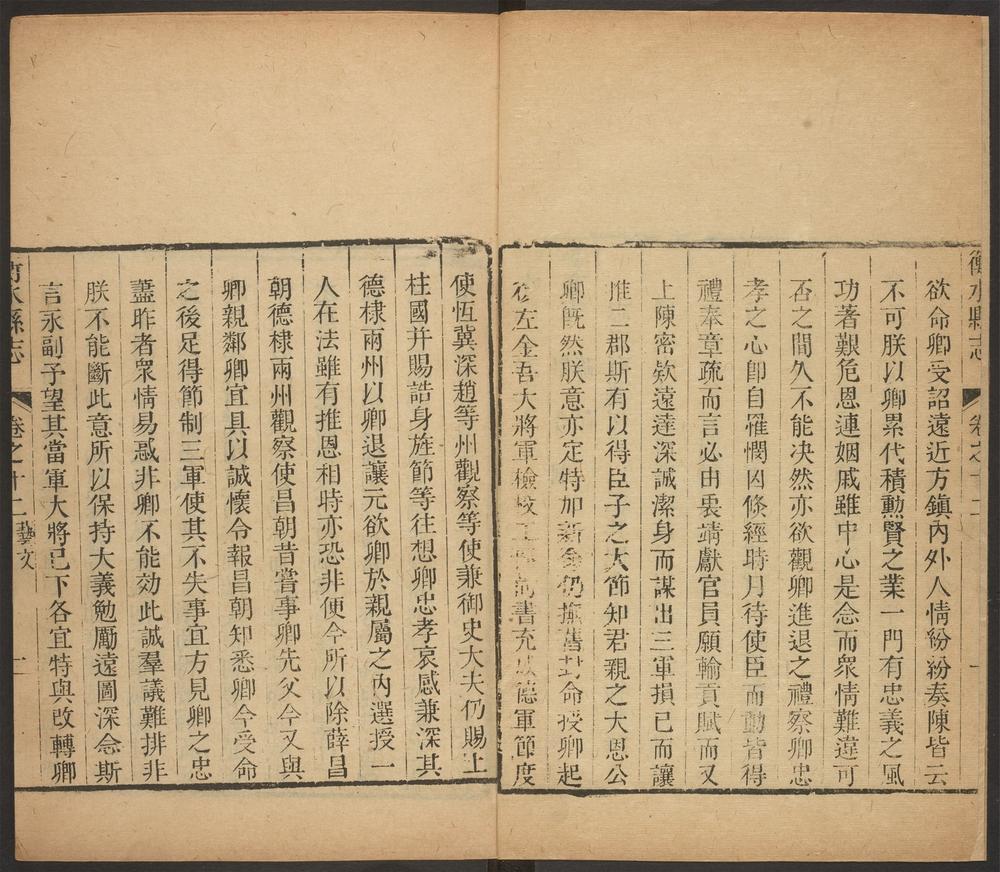 衡水縣志
卷之十二
一
欲命卿受詔遠近方鎭內外人情紛紛奏陳皆云
不可朕以卿累代積勲賢之業一門有忠義之風
功著艱危恩連姻戚雖中心是念而衆情難違可
否之間久不能决然亦欲觀卿進退之禮察卿忠
孝之心卽自罹憫凶條經時月待使臣而動皆得
禮奉章疏而言必由衷請獻官員願輸貢賦而又
上陳密欵遠達深誠潔身而謀出三軍損已而讓
推二郡斯有以得臣子之大節知君親之大恩公
卿旣然朕意亦定特加新命仍撫舊封命授卿起
復左金吾大將軍檢校工部尙書充成德軍節度
使恆冀深趙等州觀察等使兼御史大夫仍賜上
柱國幷賜誥身旌節等往想卿忠孝哀感兼深其
德棣兩州以卿退讓元欲卿於親屬之內選授一
人在法雖有推恩相時亦恐非便今所以除薛昌
朝德棣兩州觀察使昌朝昔嘗事卿先父今又與
卿親鄰卿宜具以誠懷令報昌朝知悉卿今受命
之後足得節制三軍使其不失事宜方見卿之忠
藎昨者衆情易惑非卿不能効此誠羣議難排非
朕不能斷此意所以保持大義勉勵遠圖深念斯
言永副予望其當軍大將已下各宜特與改轉卿
衡水縣志
卷之十二 藝文